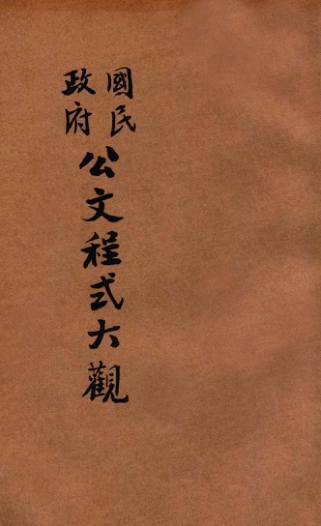 國民
政府
公文程式大觀